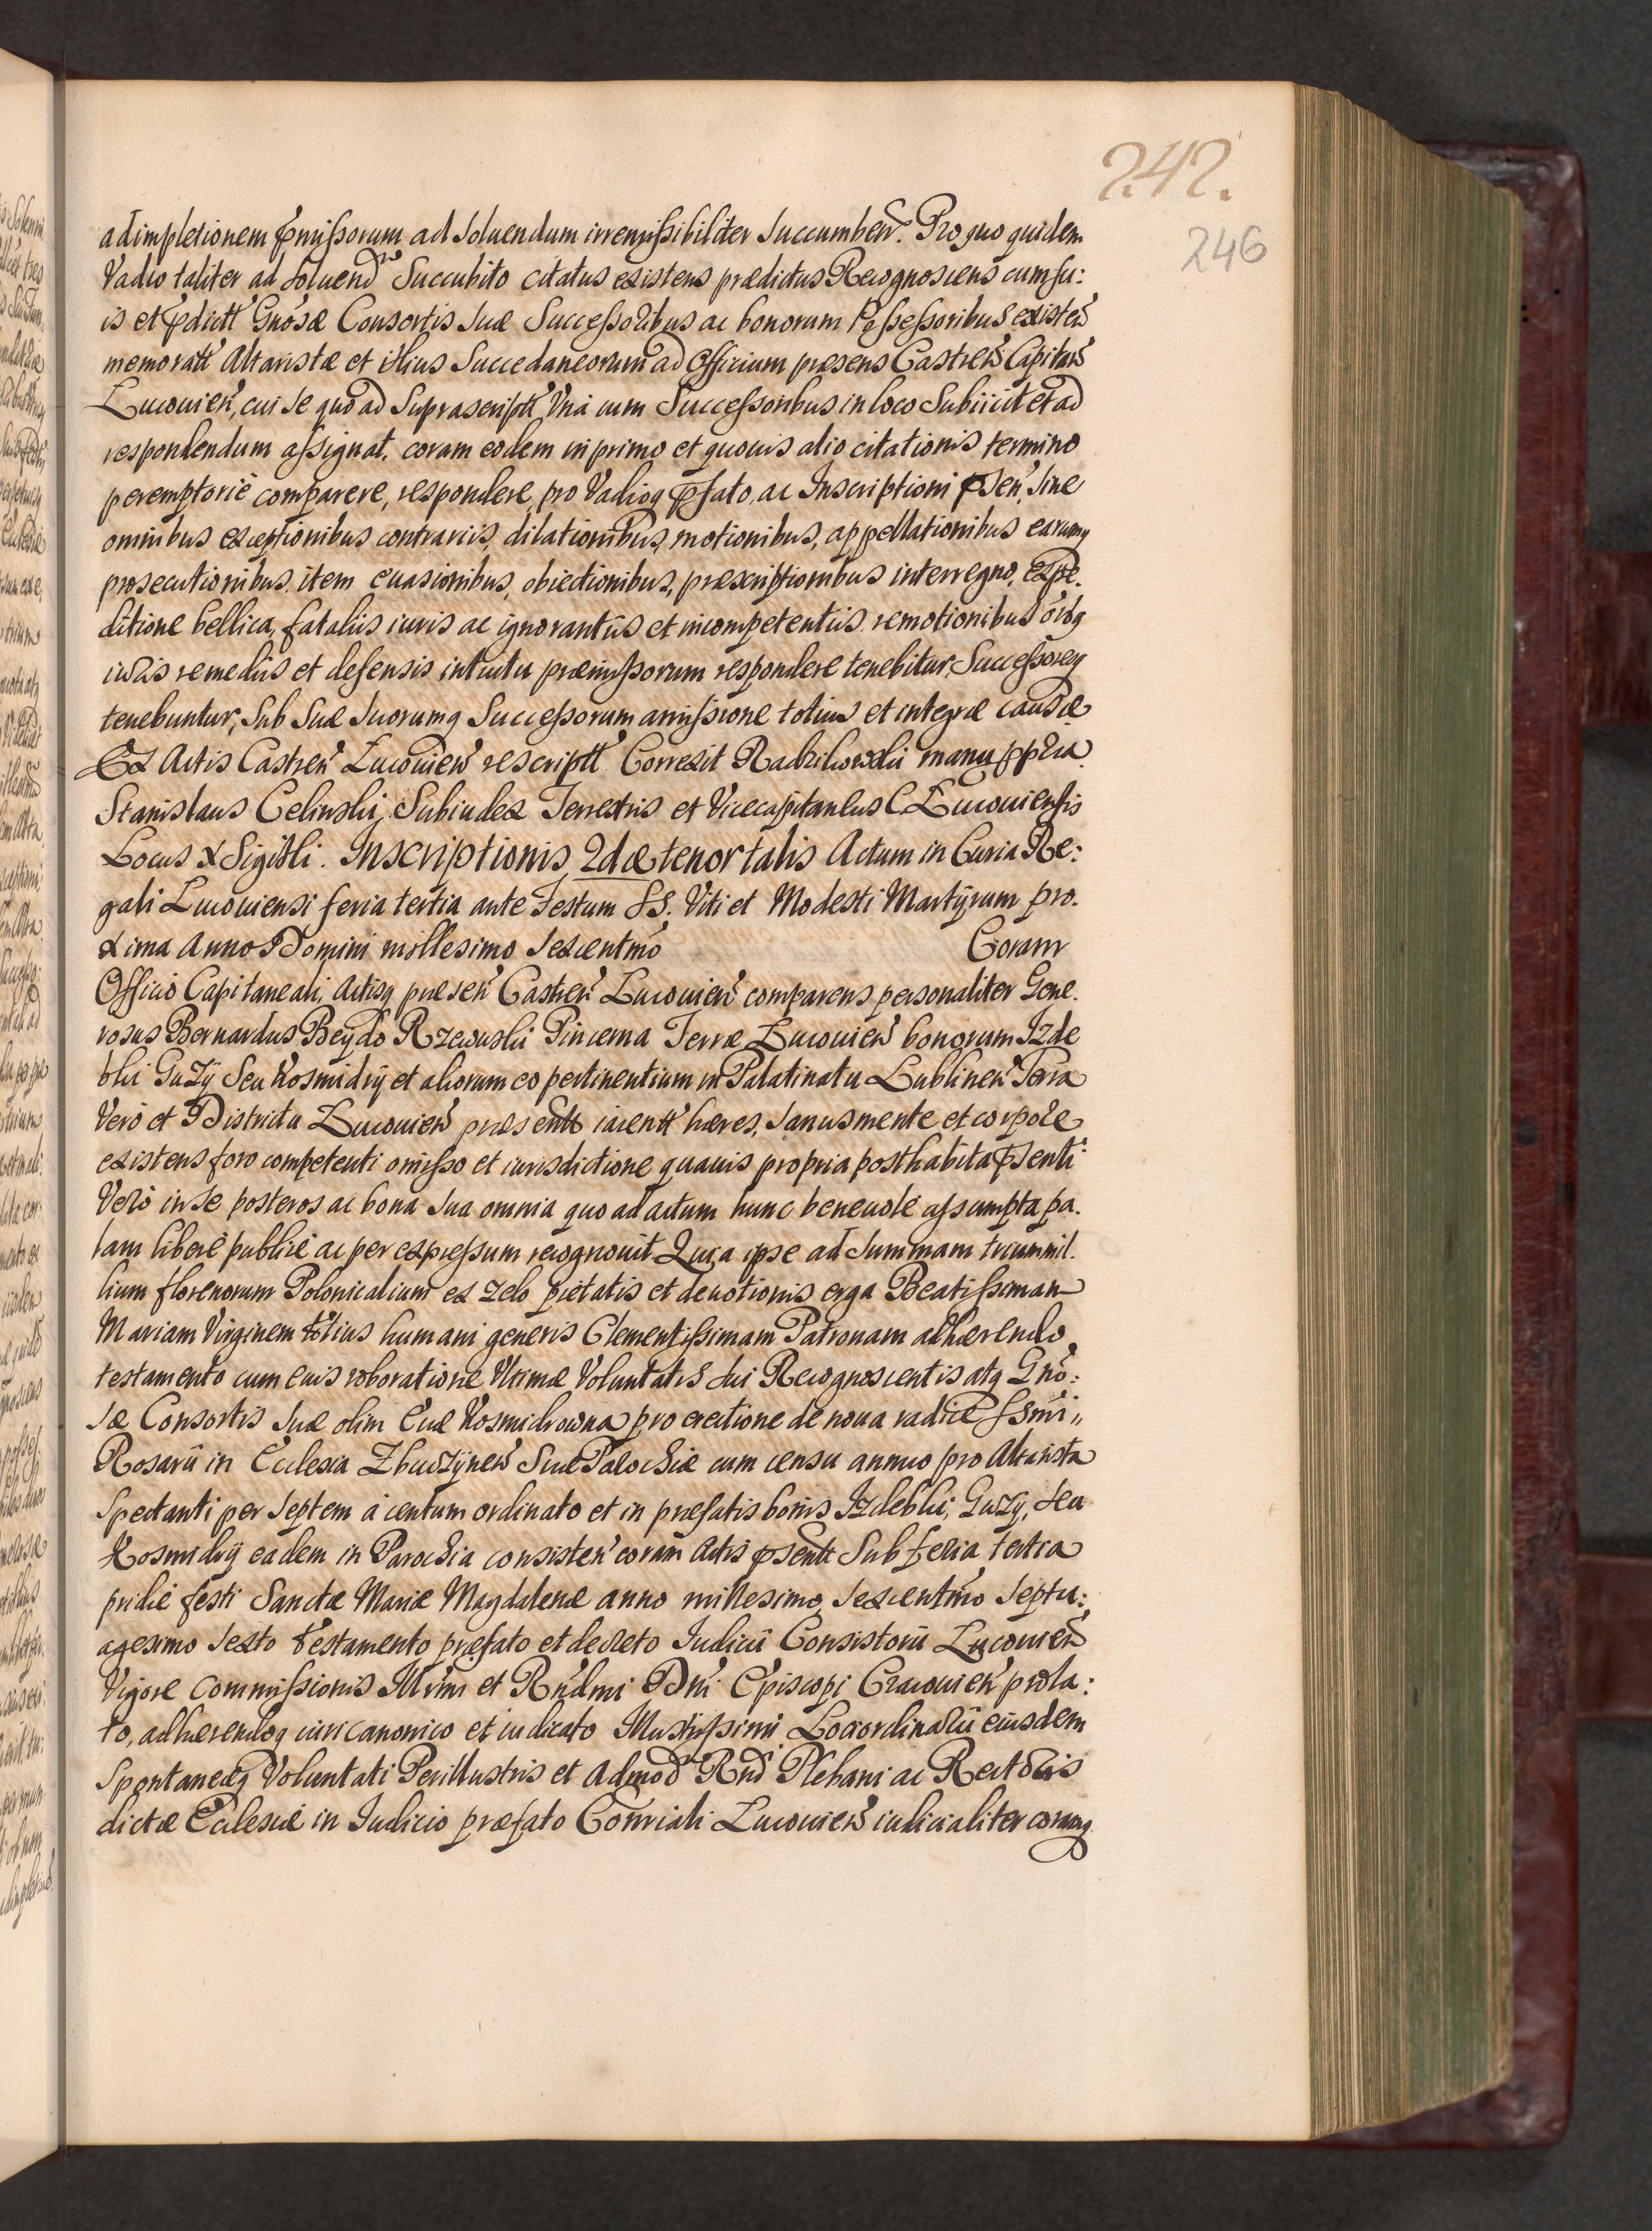 242.
246
adimpletionem pmissorum ad soluendum irremissibiliter succumben̄. Pro quo quidem
Vadio taliter ad soluend̄ Succubito citatus existens prædictus Recognoscens cum su:
is et pdictt Gnosæ Consortis suæ Successoribus ac bonorum Possessoribus existen̄
memoratt Altaristæ et illius Succedaneorum ad Officium præsens Castren̄ Capitan̄
Lucouien̄, cui se quo ad Suprascriptt Vnà cum Successoribus in loco Subiicit et ad
respondendum assignat. coram eodem in primo et quouis alio citationis termino
peremptoriè comparere, respondere, pro Vadioq pfato, ac Inscriptioni psen̄, sine
omnibus exceptionibus contrariis, dilationibus, motionibus, appellationibus earumq
prosecutionibus, item euasionibus, obiectionibus, præscriptionibus interregno, expe.
ditione bellica, fataliis iuris ac ignorantiis et incompetentiis remotionibus oibq
iuris remediis et defensis intuitu præmissorum respondere tenebitur, Successoresq
tenebuntur, sub suæ suorumq Successorum amissione totius et integræ causæ
Ex Actis Castren̄ Lucouien̄ rescriptt Correxit Radzikowski manu ppria
Stanislaus Celinski, Subiudex Terrestris et Vicecapitaneus C. Lucouiensis
Locus X Sigilli. Inscriptionis 2dæ tenor talis Actum in Curia Re:
gali Lucouiensi feria tertia ante Festum SS. Viti et Modesti Martÿrum pro.
xima Anno Domini millesimo sexcentmo Coram
Officio Capitaneali, Actisq præsen̄ Castren̄ Lucouien̄ comparens personaliter Gene.
rosus Bernardus Beydo Rzewuski Pincerna Terræ Lucouien̄ bonorum Izde
bki Guzÿ seu Kosmidrÿ et aliorum eo pertinentium in Palatinatu Lublinen̄ Terra
Verò et Districtu Lucouien̄ præsentt iacentt hæres, sanus mente et corpore
existens foro competenti omisso et iurisdictione quauis propria posthabita psenti
Verò in se posteros ac bona sua omnia quo ad actum hunc beneuolè assumpta pa.
lam liberè publicè ac per expressum recognouit Quia ipse ad summam trium mil.
lium florenorum Polonicalium ex zelo pietatis et deuotionis erga Beatissimam
Mariam Virginem totius humani generis Clementissimam Patronam adhærendo
testamento cum eius roboratione Vltimæ Voluntatis sui Recognoscentis atq Gno:
sæ Consortis suæ olim Euæ Kosmidrowna pro erectione de noua radice SSmi
Rosarii in Ecclesia Zbuczÿnen̄ Suæ Parochiæ cum censu annuo pro Altarista
Spectanti per septem à centum ordinato et in præfatis bonis Izdebki, Guzÿ, seu
Kosmidrÿ eadem in Parochia consisten̄ coram Actis psentt sub feria tertia
pridie festi Sanctæ Mariæ Magdalenæ anno millesimo, sexcentmo septu:
agesimo sexto testamento præfato et decreto Iudicii Consistorii Lucouien̄
Vigore commissionis Illrmi et Rndmi Dni Episcopi Cracouien̄ prola:
to, adhærendoq iuri canonico et iudicato Illustrissimi Lociordinarii eiusdem
Spontaneæq Voluntati Perillustris et Admod̄ Rnd̄ Plebani ac Rectoris
dictæ Ecclesiæ in Iudicio præfato Consriali Lucouien̄ iudicialiter coramq